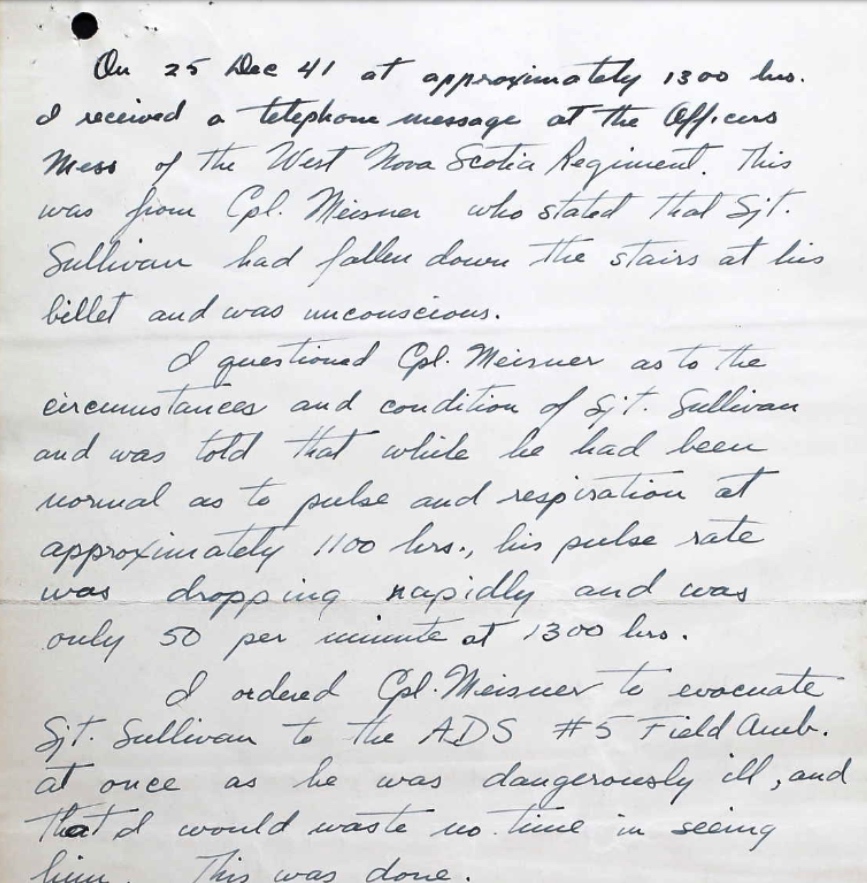 On 25 Dec 41 at approximately 1300 hrs.
I received a telephone message at the Officers
Mess of the West Nova Scotia Regiment. This
was from Cpl. Meisner who stated that Sjt.
Sullivan had fallen down the stairs at his
billet and was unconscious.
I questioned Cpl. Meisner as to the
circumstances and condition of Sjt. Sullivan
and was told that while he had been
normal as to pulse and respiration at
approximately 1100 hrs., his pulse rate
was dropping rapidly and was
only 50 per minute at 1300 hrs.
I ordered Cpl. Meisner to evacuate
Sjt. Sullivan to the ADS #5 Field Amb.
at once as he was dangerously ill, and
that I would waste no time in seeing
him. This was done.